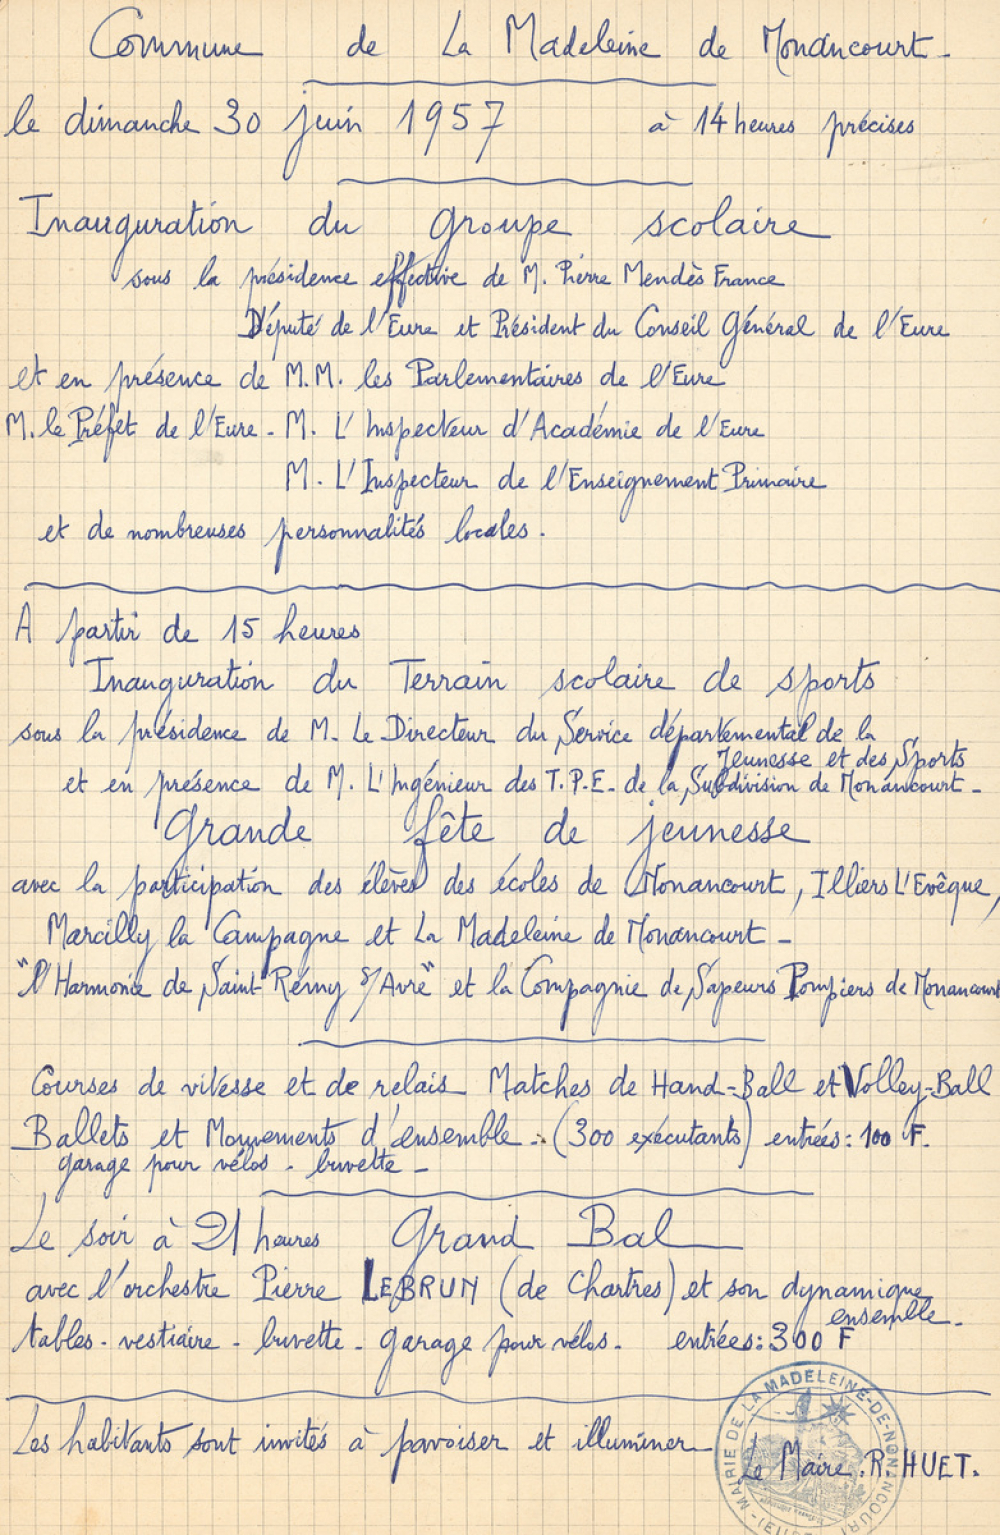 Commune de La Madeleine de Nonancourt -
le dimanche 30 juin 1957 à 14 heures précises
Inauguration du groupe scolaire
sous la présidence effective de M. Pierre Mendès France
Député de l'Eure et Président du Conseil Général de l'Eure
et en présence de M.M. les Parlementaires de l'Eure
M. le Préfet de l'Eure - M. L'Inspecteur d'Académie de l'Eure
M. L'Inspecteur de l'Enseignement Primaire
et de nombreuses personnalités locales.
A partir de 15 heures
Inauguration du Terrain scolaire de sports
sous la présidence de M. Le Directeur du Service départemental de la
Jeunesse et des Sports
et en présence de M. L'Ingénieur des T.P.E. de la Subdivision de Nonancourt -
Grande fête de jeunesse
avec la participation des élèves des écoles de Nonancourt, Illiers L'Evêque,
Marcilly la Campagne et La Madeleine de Nonancourt -
"l'Harmonie de Saint Rémy s/Avre" et la Compagnie de Sapeurs Pompiers de Nonancourt
Courses de vitesse et de relais Matches de Hand-Ball et Volley-Ball
Ballets et Mouvements d'ensemble - (300 exécutants) entrées : 100 F.
garage pour vélos - buvette -
Le soir à 21 heures Grand Bal
avec l'orchestre Pierre LEBRUN (de Chartres) et son dynamique
ensemble -
tables - vestiaire - buvette - garage pour vélos. entrées : 300 F
Les habitants sont invités à pavoiser et illuminer
Le Maire . R. HUET.
MAIRIE DE LA MADELEINE-DE-NONANCOURT
(EURE)